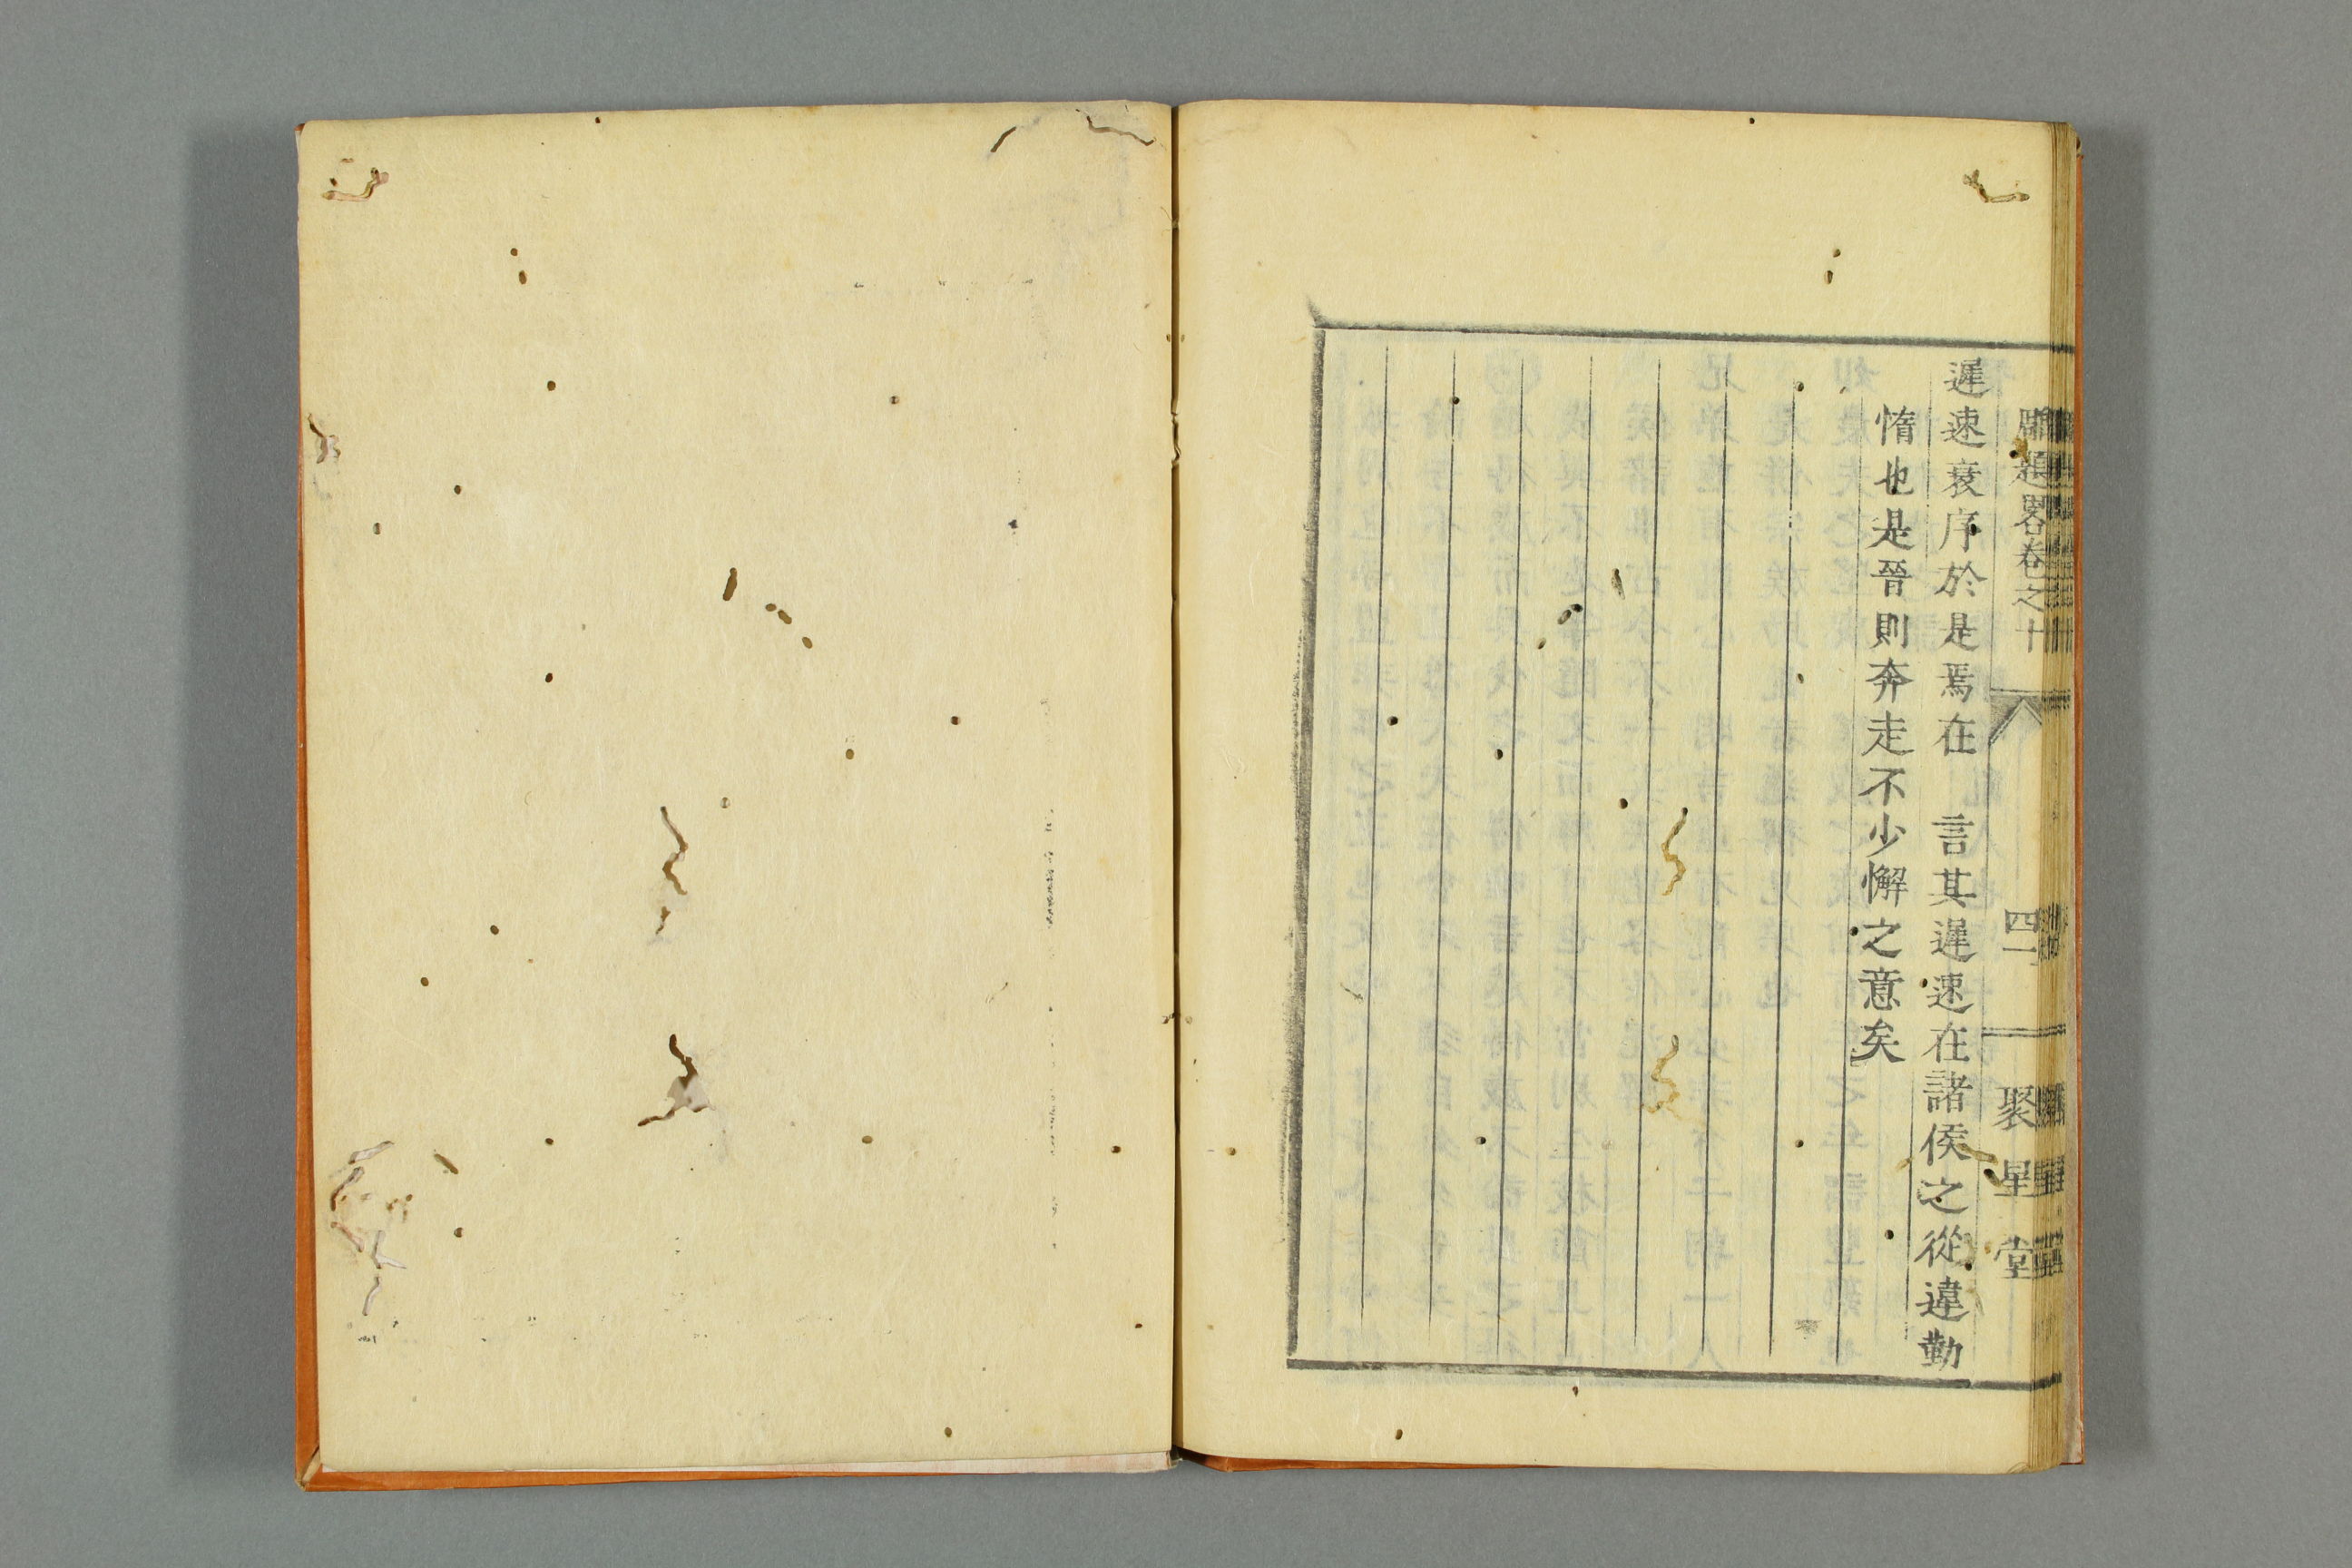 遲速衰序於是焉在　言其遲速在諸侯之從違勤
惰也是晉則奔走不少懈之意矣
題畧卷之十
四一
聚星堂